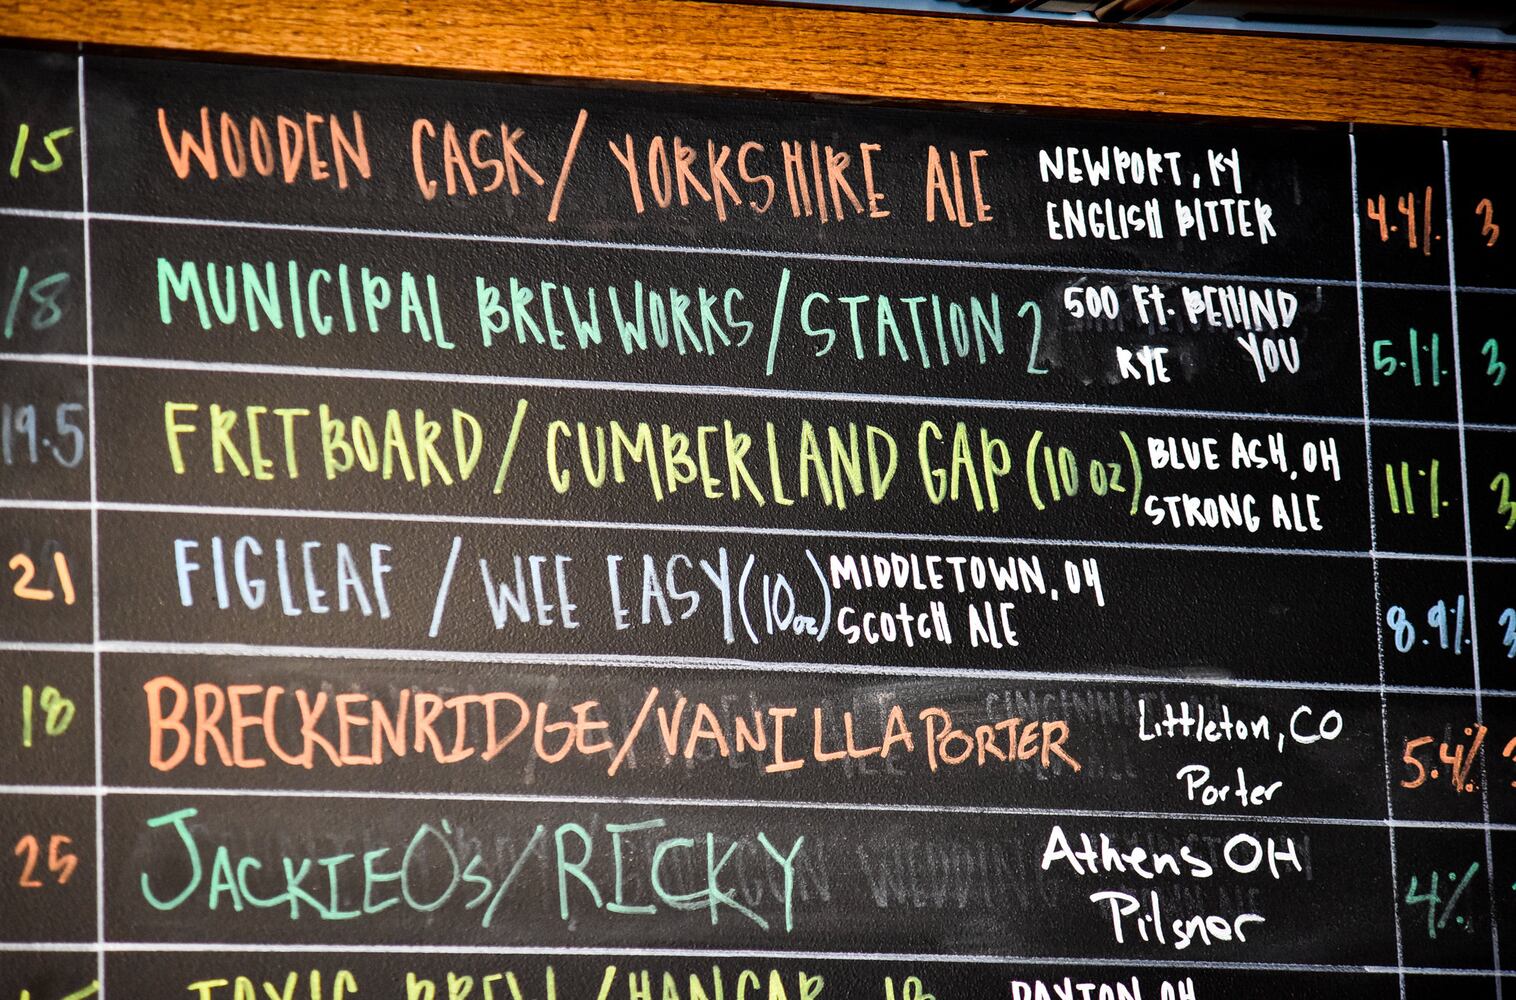 15 WOODEN CASK / YORKSHIRE ALE NEWPORT, KY 4.4% 3
ENGLISH BITTER
18 MUNICIPAL BREWWORKS / STATION 2 500 FT. BEHIND 5.1% 3
RYE YOU
19.5 FRETBOARD / CUMBERLAND GAP (10 oz) BLUE ASH, OH 11% 3
STRONG ALE
21 FIGLEAF / WEE EASY (10 oz) MIDDLETOWN, OH 8.9% 3
SCOTCH ALE
18 BRECKENRIDGE / VANILLA PORTER Littleton, CO 5.4%
Porter
25 JACKIE O's / RICKY Athens OH 4%
Pilsner
TOXIC BREW / HANGAR 18 DAYTON, OH